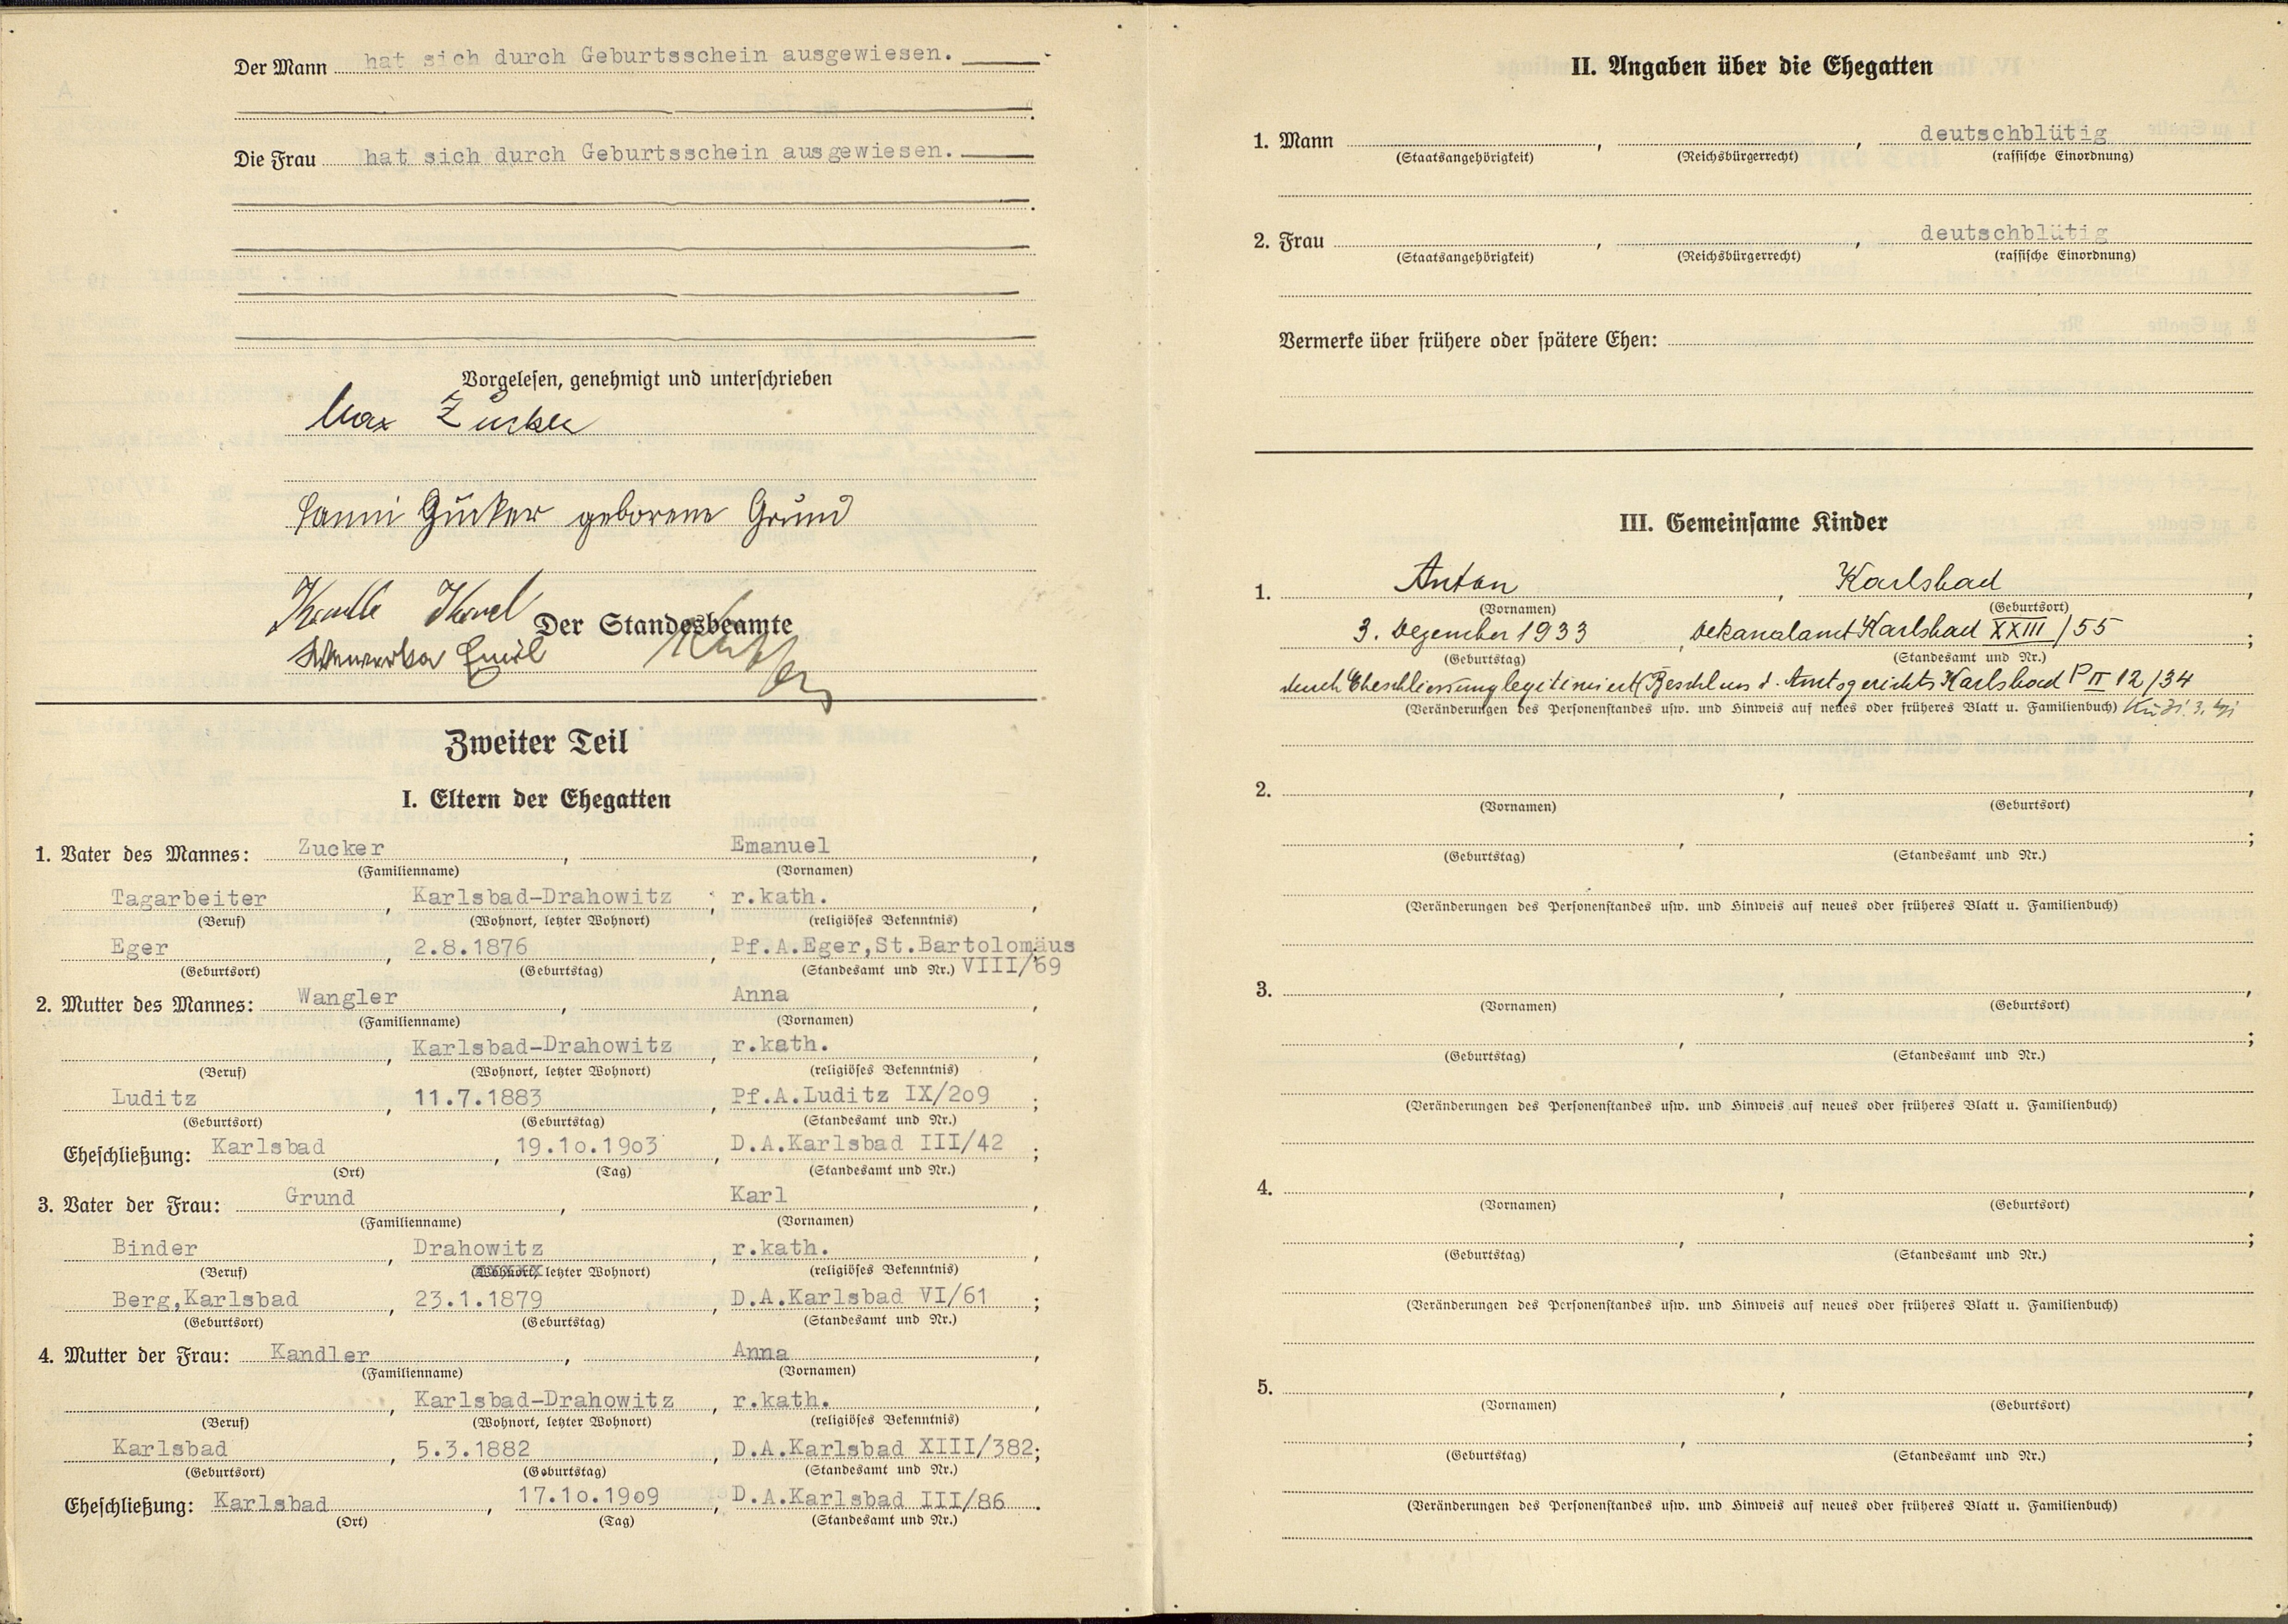 Der Mann hat sich durch Geburtsschein ausgewiesen.
Die Frau hat sich durch Geburtsschein ausgewiesen.
Vorgelesen, genehmigt und unterschrieben
Max Zucker
Fanni Zucker geborene Grund
Karl
Der Standesbeamte
Emil
Zweiter Teil
I. Eltern der Ehegatten
1. Vater des Mannes: Zucker, Emanuel,
(Familienname) (Vornamen)
Tagarbeiter, Karlsbad-Drahowitz, r.kath.,
(Beruf) (Wohnort, letzter Wohnort) (religiöses Bekenntnis)
Eger, 2.8.1876, Pf.A.Eger,St.Bartolomäus;
(Geburtsort) (Geburtstag) (Standesamt und Nr.) VIII/69
2. Mutter des Mannes: Wangler, Anna,
(Familienname) (Vornamen)
, Karlsbad-Drahowitz, r.kath.,
(Beruf) (Wohnort, letzter Wohnort) (religiöses Bekenntnis)
Luditz, 11.7.1883, Pf.A.Luditz IX/2o9;
(Geburtsort) (Geburtstag) (Standesamt und Nr.)
Eheschließung: Karlsbad, 19.1o.19o3, D.A.Karlsbad III/42;
(Ort) (Tag) (Standesamt und Nr.)
3. Vater der Frau: Grund, Karl,
(Familienname) (Vornamen)
Binder, Drahowitz, r.kath.,
(Beruf) (Wohnort, letzter Wohnort) (religiöses Bekenntnis)
Berg,Karlsbad, 23.1.1879, D.A.Karlsbad VI/61;
(Geburtsort) (Geburtstag) (Standesamt und Nr.)
4. Mutter der Frau: Kandler, Anna,
(Familienname) (Vornamen)
, Karlsbad-Drahowitz, r.kath.,
(Beruf) (Wohnort, letzter Wohnort) (religiöses Bekenntnis)
Karlsbad, 5.3.1882, D.A.Karlsbad XIII/382;
(Geburtsort) (Geburtstag) (Standesamt und Nr.)
Eheschließung: Karlsbad, 17.1o.19o9, D.A.Karlsbad III/86.
(Ort) (Tag) (Standesamt und Nr.)
II. Angaben über die Ehegatten
1. Mann , , deutschblütig
(Staatsangehörigkeit) (Reichsbürgerrecht) (rassische Einordnung)
2. Frau , , deutschblütig
(Staatsangehörigkeit) (Reichsbürgerrecht) (rassische Einordnung)
Vermerke über frühere oder spätere Ehen:
III. Gemeinsame Kinder
1. Anton, Karlsbad,
(Vornamen) (Geburtsort)
3. Dezember 1933, Dekanalamt Karlsbad XXIII/55;
(Geburtstag) (Standesamt und Nr.)
durch Eheschliessung legitimiert (Beschluss d. Amtsgerichts Karlsbad P II 12/34
(Veränderungen des Personenstandes usw. und Hinweis auf neues oder früheres Blatt u. Familienbuch)
2. , ,
(Vornamen) (Geburtsort)
, ;
(Geburtstag) (Standesamt und Nr.)
(Veränderungen des Personenstandes usw. und Hinweis auf neues oder früheres Blatt u. Familienbuch)
3. , ,
(Vornamen) (Geburtsort)
, ;
(Geburtstag) (Standesamt und Nr.)
(Veränderungen des Personenstandes usw. und Hinweis auf neues oder früheres Blatt u. Familienbuch)
4. , ,
(Vornamen) (Geburtsort)
, ;
(Geburtstag) (Standesamt und Nr.)
(Veränderungen des Personenstandes usw. und Hinweis auf neues oder früheres Blatt u. Familienbuch)
5. , ,
(Vornamen) (Geburtsort)
, ;
(Geburtstag) (Standesamt und Nr.)
(Veränderungen des Personenstandes usw. und Hinweis auf neues oder früheres Blatt u. Familienbuch)